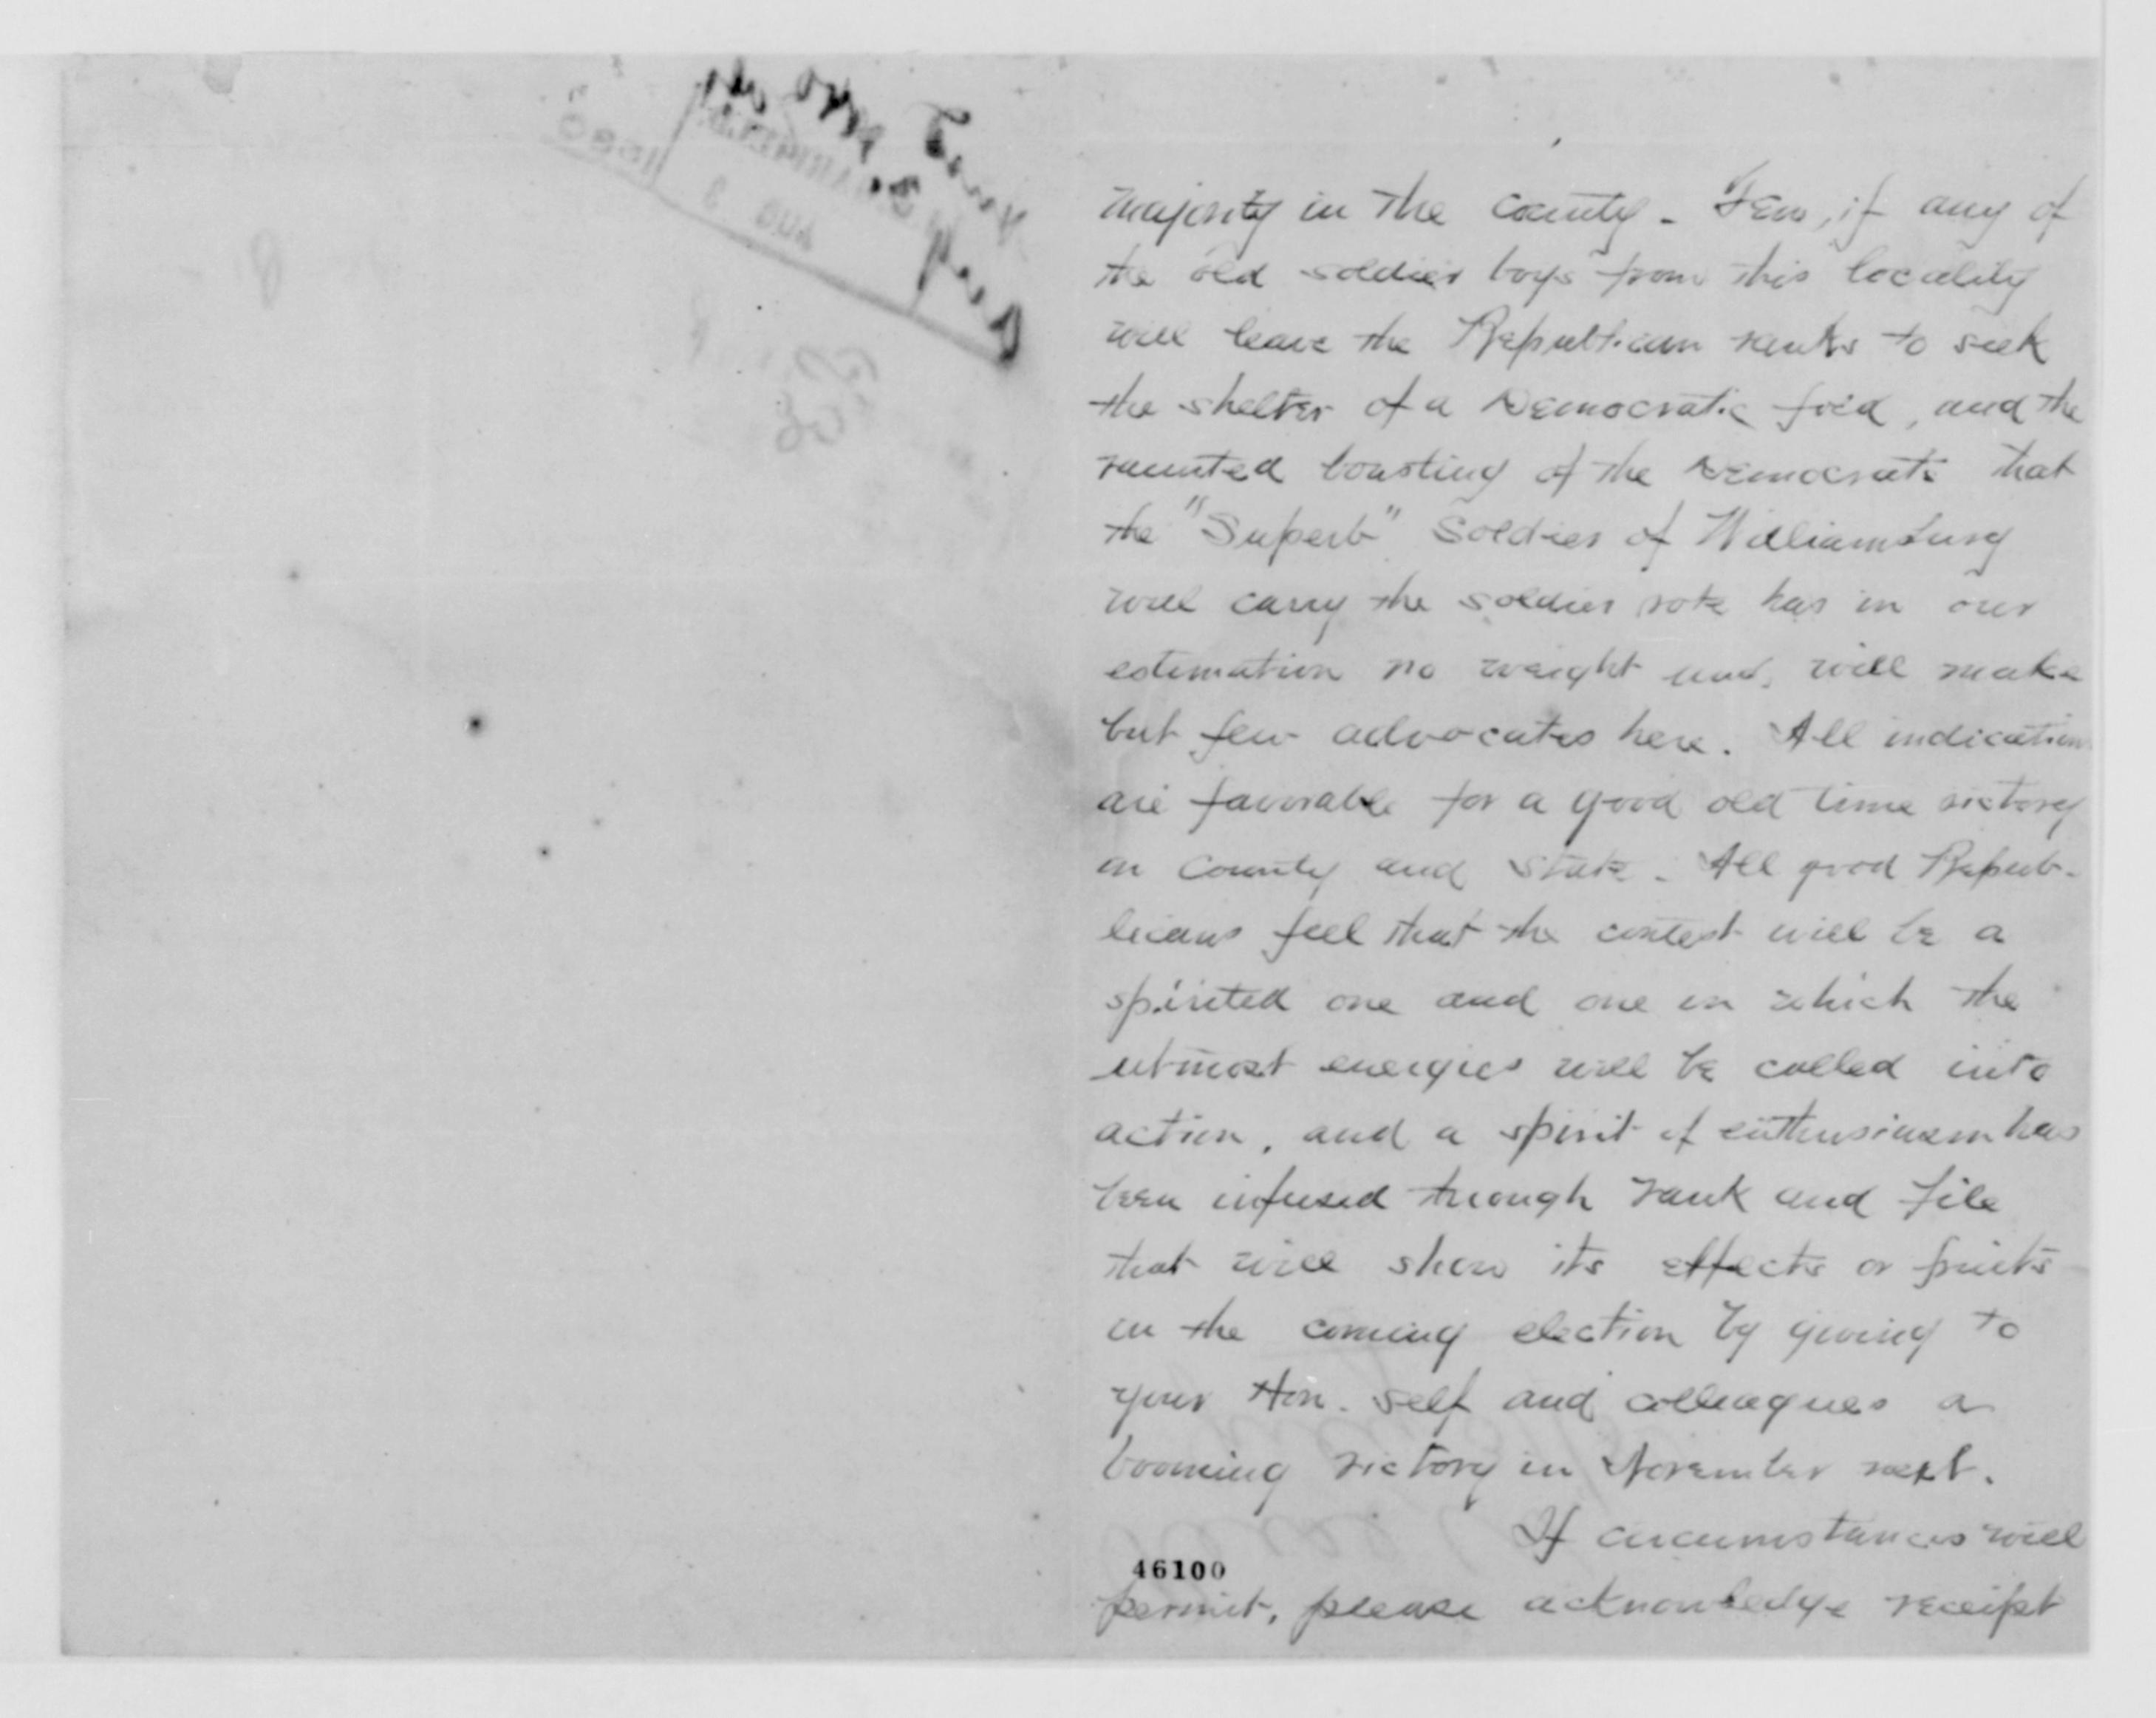 majority in the county - Few, if any of
the old soldier boys from this locality
will leave the Republican ranks to seek
the shelter of a Democratic fold, and the
vaunted boasting of the Democrats that
the "Superb" Soldier of Williamsburg
will carry the soldier vote has in our
estimation no weight and will make
but few advocates here. All indications
are favorable for a good old time victory
in County and State. All good Repub-
licans feel that the contest will be a
spirited one and one in which the
utmost energies will be called into
action, and a spirit of enthusiasm has
been infused through rank and file
that will show its effects or fruits
in the coming election by giving to
your Hon. self and colleagues a
booming victory in November next.
If circumstances will
46100
permit, please acknowledge receipt